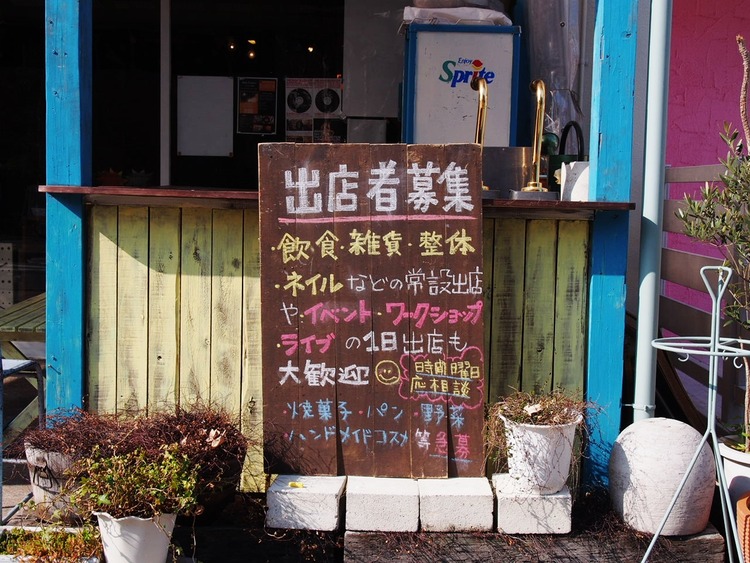 Enjoy
Sprite
出店者募集
・飲食・雑貨・整体
・ネイルなどの常設出店
や・イベント・ワークショップ
・ライブの1日出店も
大歓迎
時間曜日
応相談
焼菓子・パン・野菜
ハンドメイドコスメ等急募